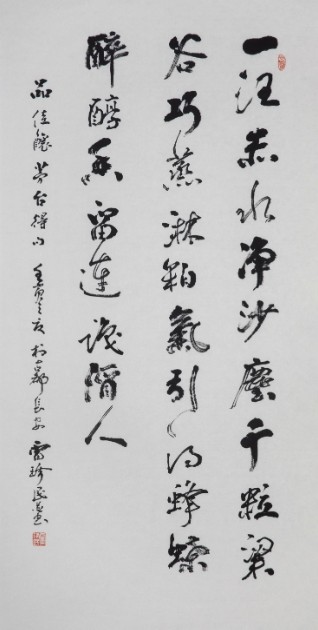 一汪赤水净沙塵千粒粱
谷巧蒸淋粕氣引得蜂蝶
醉醇香留連酒人
品佳釀茅台得句 壬寅之夏於古都長安 雷珍民並書